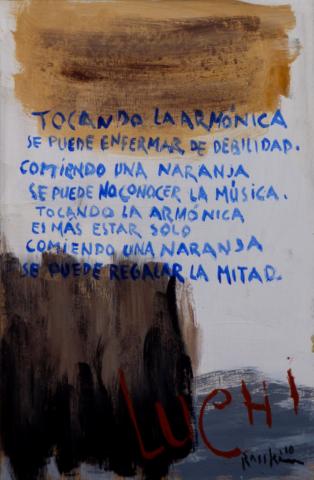 TOCANDO LA ARMÓNICA
SE PUEDE ENFERMAR DE DEBILIDAD.
COMIENDO UNA NARANJA
SE PUEDE NO CONOCER LA MÚSICA.
TOCANDO LA ARMÓNICA
ES MÁS ESTAR SOLO
COMIENDO UNA NARANJA
SE PUEDE REGALAR LA MITAD.
LUCHI